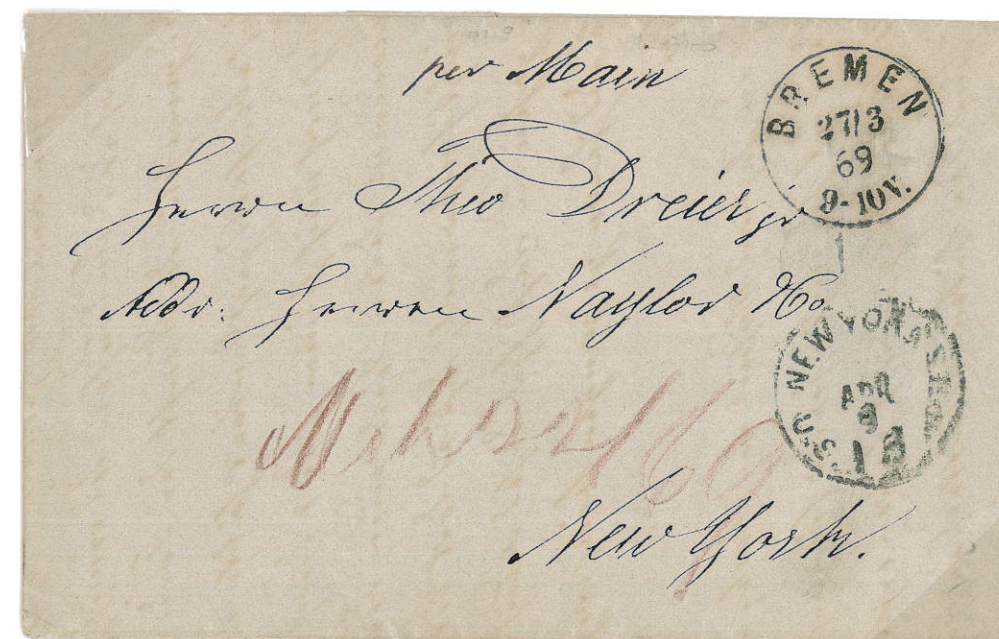 per Main
BREMEN
27/3
69
9-10V.
Herrn Theo Dreier jr
Addr: Herren Naylor & Co
NEW YORK
APR
9
New York.